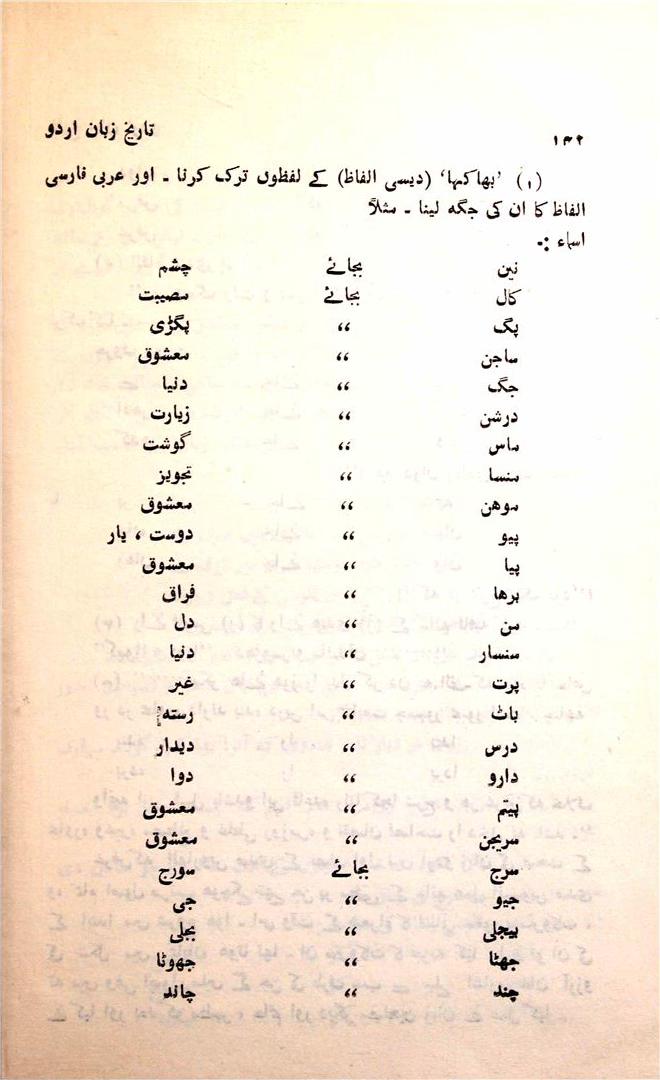 ۱۴۲ تاریخ زبان اردو
(۱) ’بھاکھا‘ (دیسی الفاظ) کے لفظوں ترک کرنا ۔ اور عربی فارسی
الفاظ کا ان کی جگہ لینا ۔ مثلاً
اسماء :۔
نین بجائے چشم
کال بجائے مصیبت
پگ ،، پگڑی
ساجن ،، معشوق
جگ ،، دنیا
درشن ،، زیارت
ماس ،، گوشت
منسا ،، تجویز
موھن ،، معشوق
پیو ،، دوست ، یار
پیا ،، معشوق
برھا ،، فراق
من ،، دل
سنسار ،، دنیا
پرت ،، غیر
باٹ ،، رستہ
درس ،، دیدار
دارو ،، دوا
پیتم ،، معشوق
سریجن ،، معشوق
سرج بجائے سورج
جیو ،، جی
بیجلی ،، بجلی
جھٹا ،، جھوٹا
چند ،، چاند